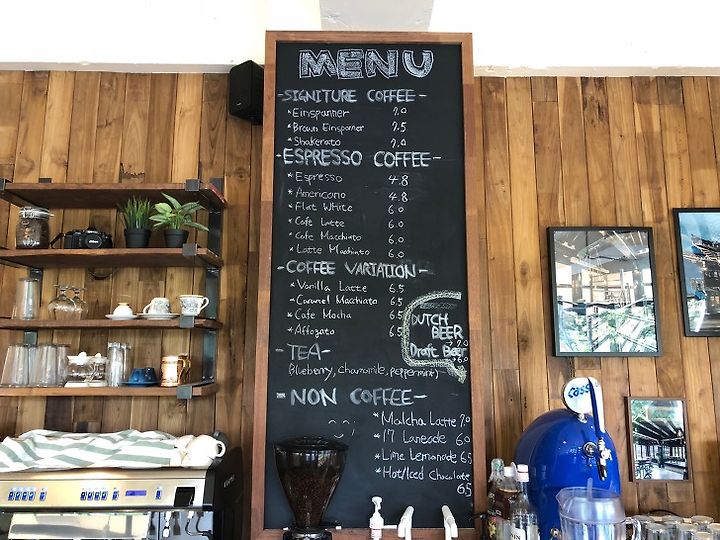 MENU
-SIGNITURE COFFEE-
*Einspanner 7.0
*Brown Einspanner 7.5
*Shakerato 7.0
-ESPRESSO COFFEE-
*Espresso 4.8
*Americano 4.8
*Flat White 6.0
*Cafe Latte 6.0
*Cafe Macchiato 6.0
*Latte Macchiato 6.0
-COFFEE VARIATION-
*Vanilla Latte 6.5
*Caramel Macchiato 6.5
*Cafe Mocha 6.5
*Affogato 6.5
DUTCH BEER 7.0
Draft Beer 6.0
-TEA-
(Blueberry, chamomile, peppermint)
-NON COFFEE-
*Matcha Latte 7.0
*17 Laneade 6.0
*Lime Lemonade 6.5
*Hot/Iced Chocolate 6.5
cass